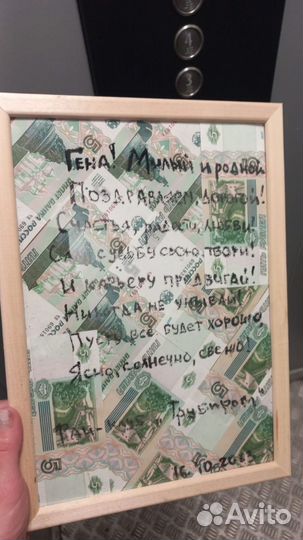 4
3
Гена! Милый и родной
Поздравляем, дорогой!
Счастья, радости, любви!
Сам судьбу свою твори!
И карьеру продвигай!
Никогда не унывай!
Пусть всё будет хорошо
Ясно, солнечно, свежо!
Фан-клуб
16.10.2023
Avito